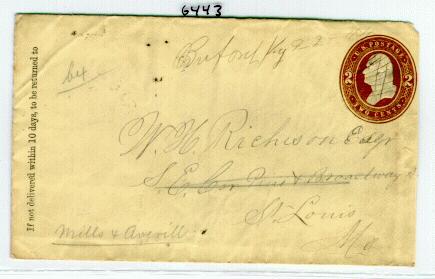 6443
If not delivered within 10 days, to be returned to
Buford Ky 9 22
U.S. POSTAGE
2 2
TWO CENTS
W. H. Richeson Esqr
S. E. Cor Pine & Broadway
St. Louis
Mo
Mills & Averill